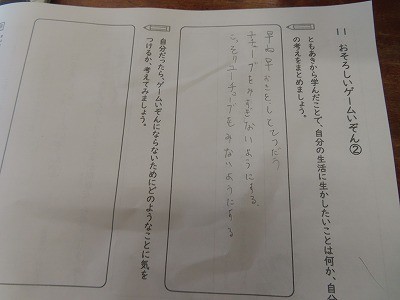 11 おそろしいゲームいぞん②
ともあきから学んだことで、自分の生活に生かしたいことは何か、自分
の考えをまとめましょう。
早ね早おきをしててつだう
ユチューブをみすぎないようにする。
こっそりユーチューブをみないようにする
自分だったら、ゲームいぞんにならないためにどのようなことに気を
つけるか、考えてみましょう。